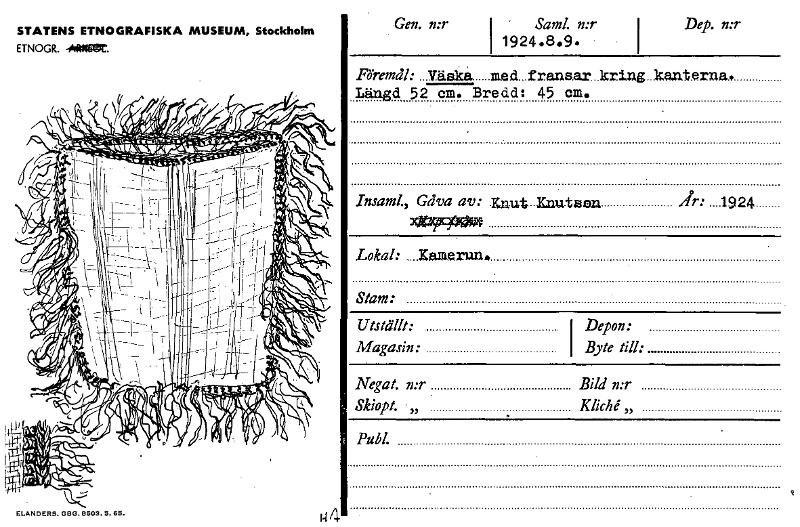 STATENS ETNOGRAFISKA MUSEUM, Stockholm
ETNOGR.
Gen. n:r Saml. n:r Dep. n:r
1924.8.9.
Föremål: Väska med fransar kring kanterna.
Längd 52 cm. Bredd: 45 cm.
Insaml., Gåva av: Knut Knutson År: 1924
Lokal: Kamerun.
Stam:
Utställt: Depon:
Magasin: Byte till:
Negat. n:r Bild n:r
Skiopt. „ Kliché „
Publ.
ELANDERS. GBG. 8503. 5. 65.
HA